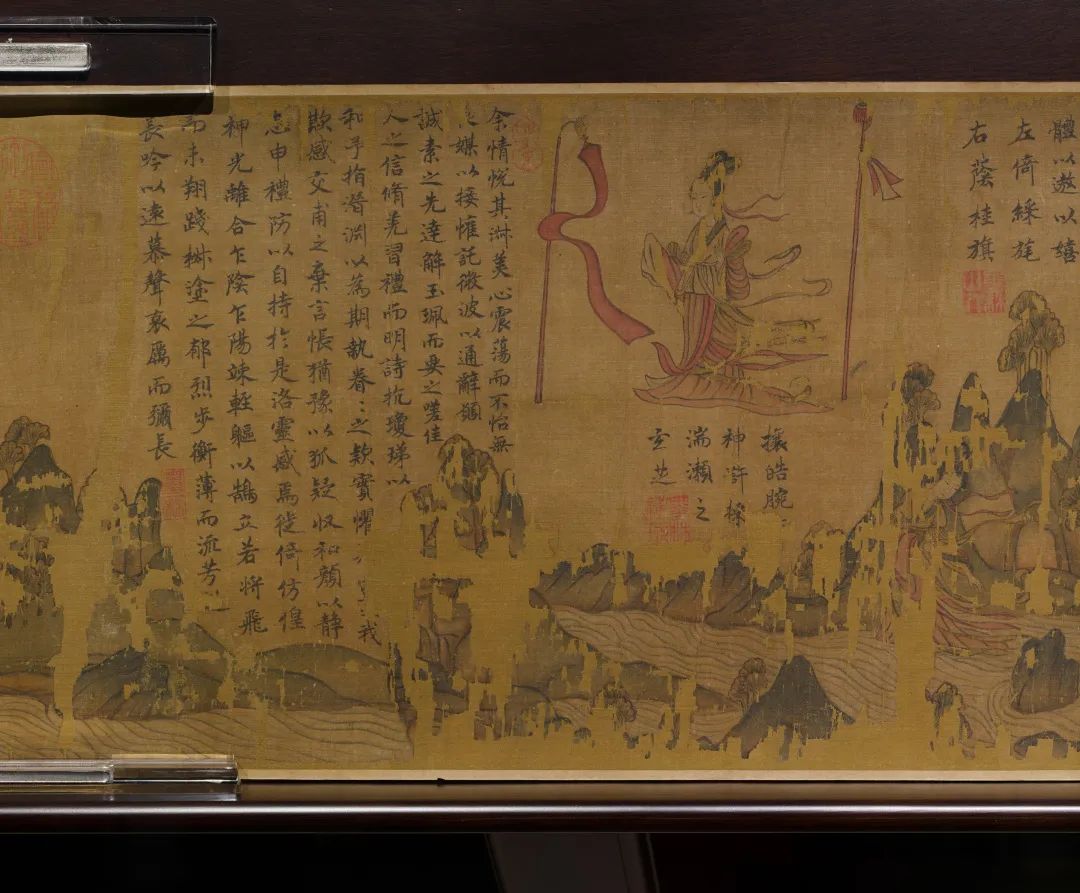 體以遨以嬉
左倚綵旄
右蔭桂旗
攘皓腕
神滸採
湍瀨之
玄芝
余情悅其淑美心震蕩而不怡無
媒以接懽託微波以通辭願
誠素之先達解玉珮而要之嗟佳
人之信脩羌習禮而明詩抗瓊珶以
和予指潛淵以為期執眷〻之款實懼我
欺感交甫之棄言悵猶豫以狐疑收和顏以靜
志申禮防以自持於是洛靈感焉徙倚彷徨
神光離合乍陰乍陽竦輕軀以鶴立若將飛
而未翔踐椒塗之郁烈步衡薄而流芳
長吟以遠慕聲哀厲而彌長